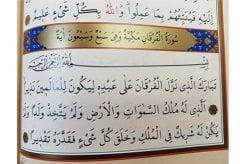 إِلَيْهِ فَيُنَبِّئُهُمْ بِمَا عَمِلُوا وَاللَّهُ بِكُلِّ شَيْءٍ عَلِيمٌ
سُورَةُ الْفُرْقَانِ مَكِّيَّةٌ وَهِيَ سَبْعٌ وَسَبْعُونَ آيَةً
بِسْمِ اللَّهِ الرَّحْمَنِ الرَّحِيمِ
تَبَارَكَ الَّذِي نَزَّلَ الْفُرْقَانَ عَلَى عَبْدِهِ لِيَكُونَ لِلْعَالَمِينَ نَذِيرًا
الَّذِي لَهُ مُلْكُ السَّمٰوَاتِ وَالْأَرْضِ وَلَمْ يَتَّخِذْ وَلَدًا وَلَمْ
يَكُنْ لَهُ شَرِيكٌ فِي الْمُلْكِ وَخَلَقَ كُلَّ شَيْءٍ فَقَدَّرَهُ تَقْدِيرًا